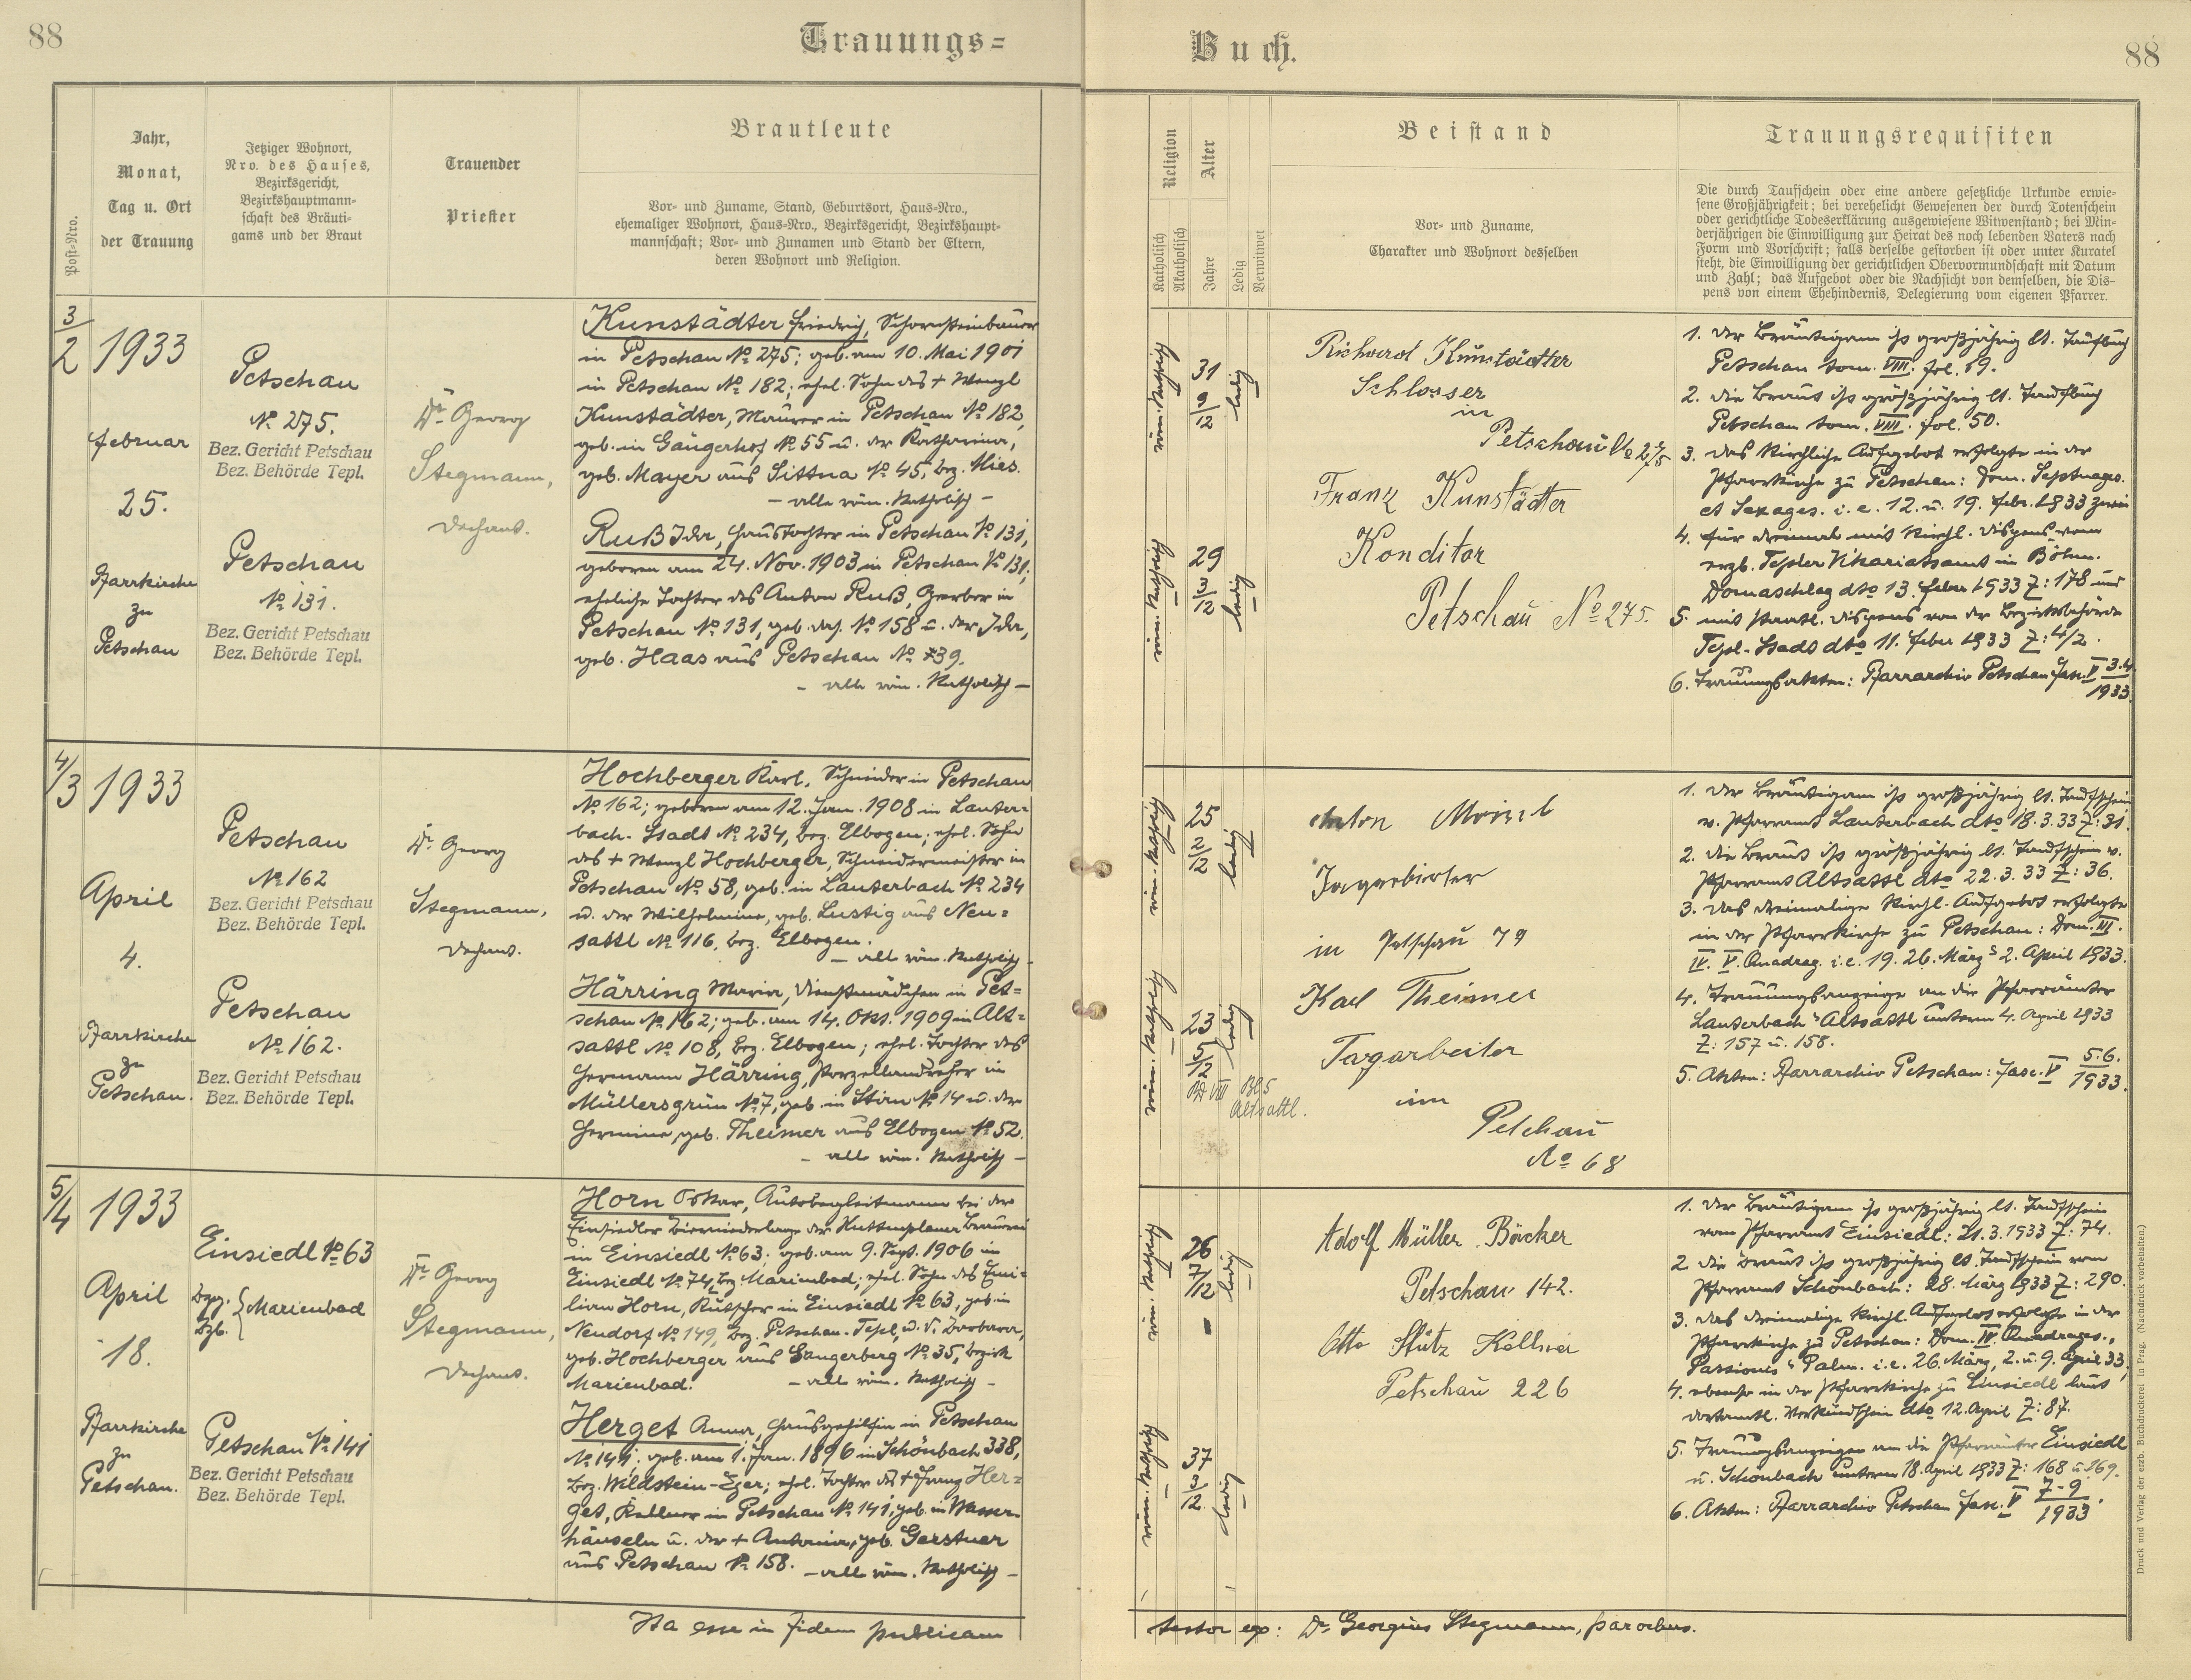 88
Trauungs=
Buch.
88
Post-Nro.
Jahr,
Monat,
Tag u. Ort
der Trauung
Jetziger Wohnort,
Nro. des Hauses,
Bezirksgericht,
Bezirkshauptmann-
schaft des Bräuti-
gams und der Braut
Trauender
Priester
Brautleute
Vor- und Zuname, Stand, Geburtsort, Haus-Nro.,
ehemaliger Wohnort, Haus-Nro., Bezirksgericht, Bezirkshaupt-
mannschaft; Vor- und Zunamen und Stand der Eltern,
deren Wohnort und Religion.
Religion
Katholisch
Akatholisch
Alter
Jahre
Ledig
Verwitwet
Beistand
Vor- und Zuname,
Charakter und Wohnort desselben
Trauungsrequisiten
Die durch Taufschein oder eine andere gesetzliche Urkunde erwie-
sene Großjährigkeit; bei verehelicht Gewesenen der durch Totenschein
oder gerichtliche Todeserklärung ausgewiesene Witwenstand; bei Min-
derjährigen die Einwilligung zur Heirat des noch lebenden Vaters nach
Form und Vorschrift; falls derselbe gestorben ist oder unter Kuratel
steht, die Einwilligung der gerichtlichen Obervormundschaft mit Datum
und Zahl; das Aufgebot oder die Nachsicht von demselben, die Dis-
pens von einem Ehehindernis, Delegierung vom eigenen Pfarrer.
3/2
1933
Februar
25.
Pfarrkirche
zu
Petschau
Petschau
No 275.
Bez. Gericht Petschau
Bez. Behörde Tepl.
Petschau
No 131.
Bez. Gericht Petschau
Bez. Behörde Tepl.
Dr. Georg
Stegmann,
Dechant.
Kunstädter Friedrich, Schornsteinbauer
in Petschau No 275; geb. am 10. Mai 1901
in Petschau No 182; ehel. Sohn des + Wenzl
Kunstädter, Maurer in Petschau No 182,
geb. in Gängerhof No 55 u. der Katharina,
geb. Mayer aus Sittna No 45, bez. Mies.
- alle röm. Katholisch -
Ruß Ida, Haustochter in Petschau No 131,
geboren am 24. Nov. 1903 in Petschau No 131;
eheliche Tochter des Anton Ruß, Gerber in
Petschau No 131, geb. das. No 158 u. der Ida,
geb. Haas aus Petschau No 39.
- alle röm. Katholisch -
röm. Katholisch
31
9/12
ledig
röm. Katholisch
29
3/12
ledig
Richard Kunstädter
Schlosser
in
Petschau No 275
Franz Kunstädter
Konditor
Petschau No 275.
1. Der Bräutigam ist großjährig lt. Taufbuch
Petschau tom. VIII. fol. 19.
2. die Braut ist großjährig lt. Taufbuch
Petschau tom. VIII. fol. 50.
3. das kirchliche Aufgebot erfolgte in der
Pfarrkirche zu Petschau: Dom. Septuages.
et Sexages. i. e. 12. u. 19. Febr. 1933 zweim
4. für dreimal mit kirchl. Dispens vom
erzb. Tepler Vikariatsamt in Böhm.
Domaschlag dto 13. Feber 1933 Z: 178 und
5. mit staatl. Dispens von der Bezirksbehörde
Tepl-Stadt dto 11. Feber 1933 Z: 4/2.
6. Trauungsakten: Pfarrarchiv Petschau Fasc. V 3.4./1933.
4/3
1933
April
4.
Pfarrkirche
zu
Petschau.
Petschau
No 162
Bez. Gericht Petschau
Bez. Behörde Tepl.
Petschau
No 162.
Bez. Gericht Petschau
Bez. Behörde Tepl.
Dr. Georg
Stegmann,
Dechant.
Hochberger Karl, Schneider in Petschau
No 162; geboren am 12. Jan. 1908 in Lauter=
bach-Stadt No 234, bez. Elbogen; ehel. Sohn
des + Wenzl Hochberger, Schneidermeister in
Petschau No 58, geb. in Lauterbach No 234
u. der Wilhelmine, geb. Lustig aus Neu=
sattl No 116, bez. Elbogen.
- alle röm. Katholisch -
Härring Maria, Dienstmädchen in Pet=
schau No 162; geb. am 14. Okt. 1909 in Alt=
sattl No 108, bez. Elbogen; ehel. Tochter des
Hermann Härring, Porzellandreher in
Müllersgrün No 7, geb. in Stirn No 14 u. der
Hermine, geb. Theimer aus Elbogen No 52.
- alle röm. Katholisch -
röm. Katholisch
25
2/12
ledig
röm. Katholisch
23
5/12
ledig
Bd VIII Bl 5
Altsattl.
Anton
in Petschau 79
Karl Theimer
Tagarbeiter
im
Petchau
No 68
1. Der Bräutigam ist großjährig lt. Taufschein
v. Pfarramt Lauterbach dto 18.3.33 Z: 31.
2. die Braut ist großjährig lt. Taufschein v.
Pfarramt Altsattl dto 22.3.33 Z: 36.
3. das dreimalige kirchl. Aufgebot erfolgte
in der Pfarrkirche zu Petschau: Dom. III.
IV. V. Quadrag. i.e. 19. 26. März u 2. April 1933.
4. Trauungsanzeige an die Pfarrämter
Lauterbach u Altsattl unterm 4. April 1933
Z: 157 u. 158.
5. Akten: Pfarrarchiv Petschau: Fasc. V 5.6./1933.
5/4
1933
April
18.
Pfarrkirche
zu
Petschau.
Einsiedl No 63
Marienbad
Petschau No 141
Bez. Gericht Petschau
Bez. Behörde Tepl.
Dr. Georg
Stegmann,
Dechant.
Horn Oskar, Autobegleitmann bei der
Einsiedler Bierniederlage der Kuttenplaner Brauerei
in Einsiedl No 63; geb. am 9. Sept. 1906 in
Einsiedl No 74, bez Marienbad; ehel. Sohn des Emi=
lian Horn, Kutscher in Einsiedl No 63, geb. in
Neudorf No 149, bez. Petschau-Tepl, u. d. Barbara,
geb. Hochberger aus Sangerberg No 35, bezirk
Marienbad. - alle röm. Katholisch -
Herget Anna, Hausgehilfin in Petschau
No 141; geb. am 1. Jan. 1896 in Schönbach 338,
bez. Wildstein-Eger; ehel. Tochter des + Franz Her=
get, Kellner in Petschau No 141, geb. in Wasser-
häuseln u. der + Antonia, geb. Gerstner
aus Petschau No 158. - alle röm. Katholisch -
röm. Katholisch
26
7/12
ledig
röm. Katholisch
37
3/12
ledig
Adolf Müller Bäcker
Petschau 142.
Otto Stütz Kellner
Petschau 226
1. Der Bräutigam ist großjährig lt. Taufschein
vom Pfarramt Einsiedl: 21.3.1933 Z: 74.
2 die Braut ist großjährig lt Taufschein vom
Pfarramt Schönbach: 28. März 1933 Z: 290.
3. das dreimalige kirchl. Aufgebot erfolgte in der
Pfarrkirche zu Petschau: Dom. IV. Quadrages.,
Passionis u Palm. i.e. 26. März, 2. u. 9. April 33,
4. ebenso in der Pfarrkirche zu Einsiedl laut
dortamtl. Verkündschein dto 12. April Z: 87.
5. Trauungsanzeigen an die Pfarrämter Einsiedl
u. Schönbach unterm 18. April 1933 Z: 168 u. 169.
6. Akten: Pfarrarchiv Petschau Fasc. V 7-9/1933.
Ita esse in fidem publicam
testor ego: Dr. Georgius Stegmann, parochus.
Druck und Verlag der erzb. Buchdruckerei in Prag. (Nachdruck vorbehalten.)